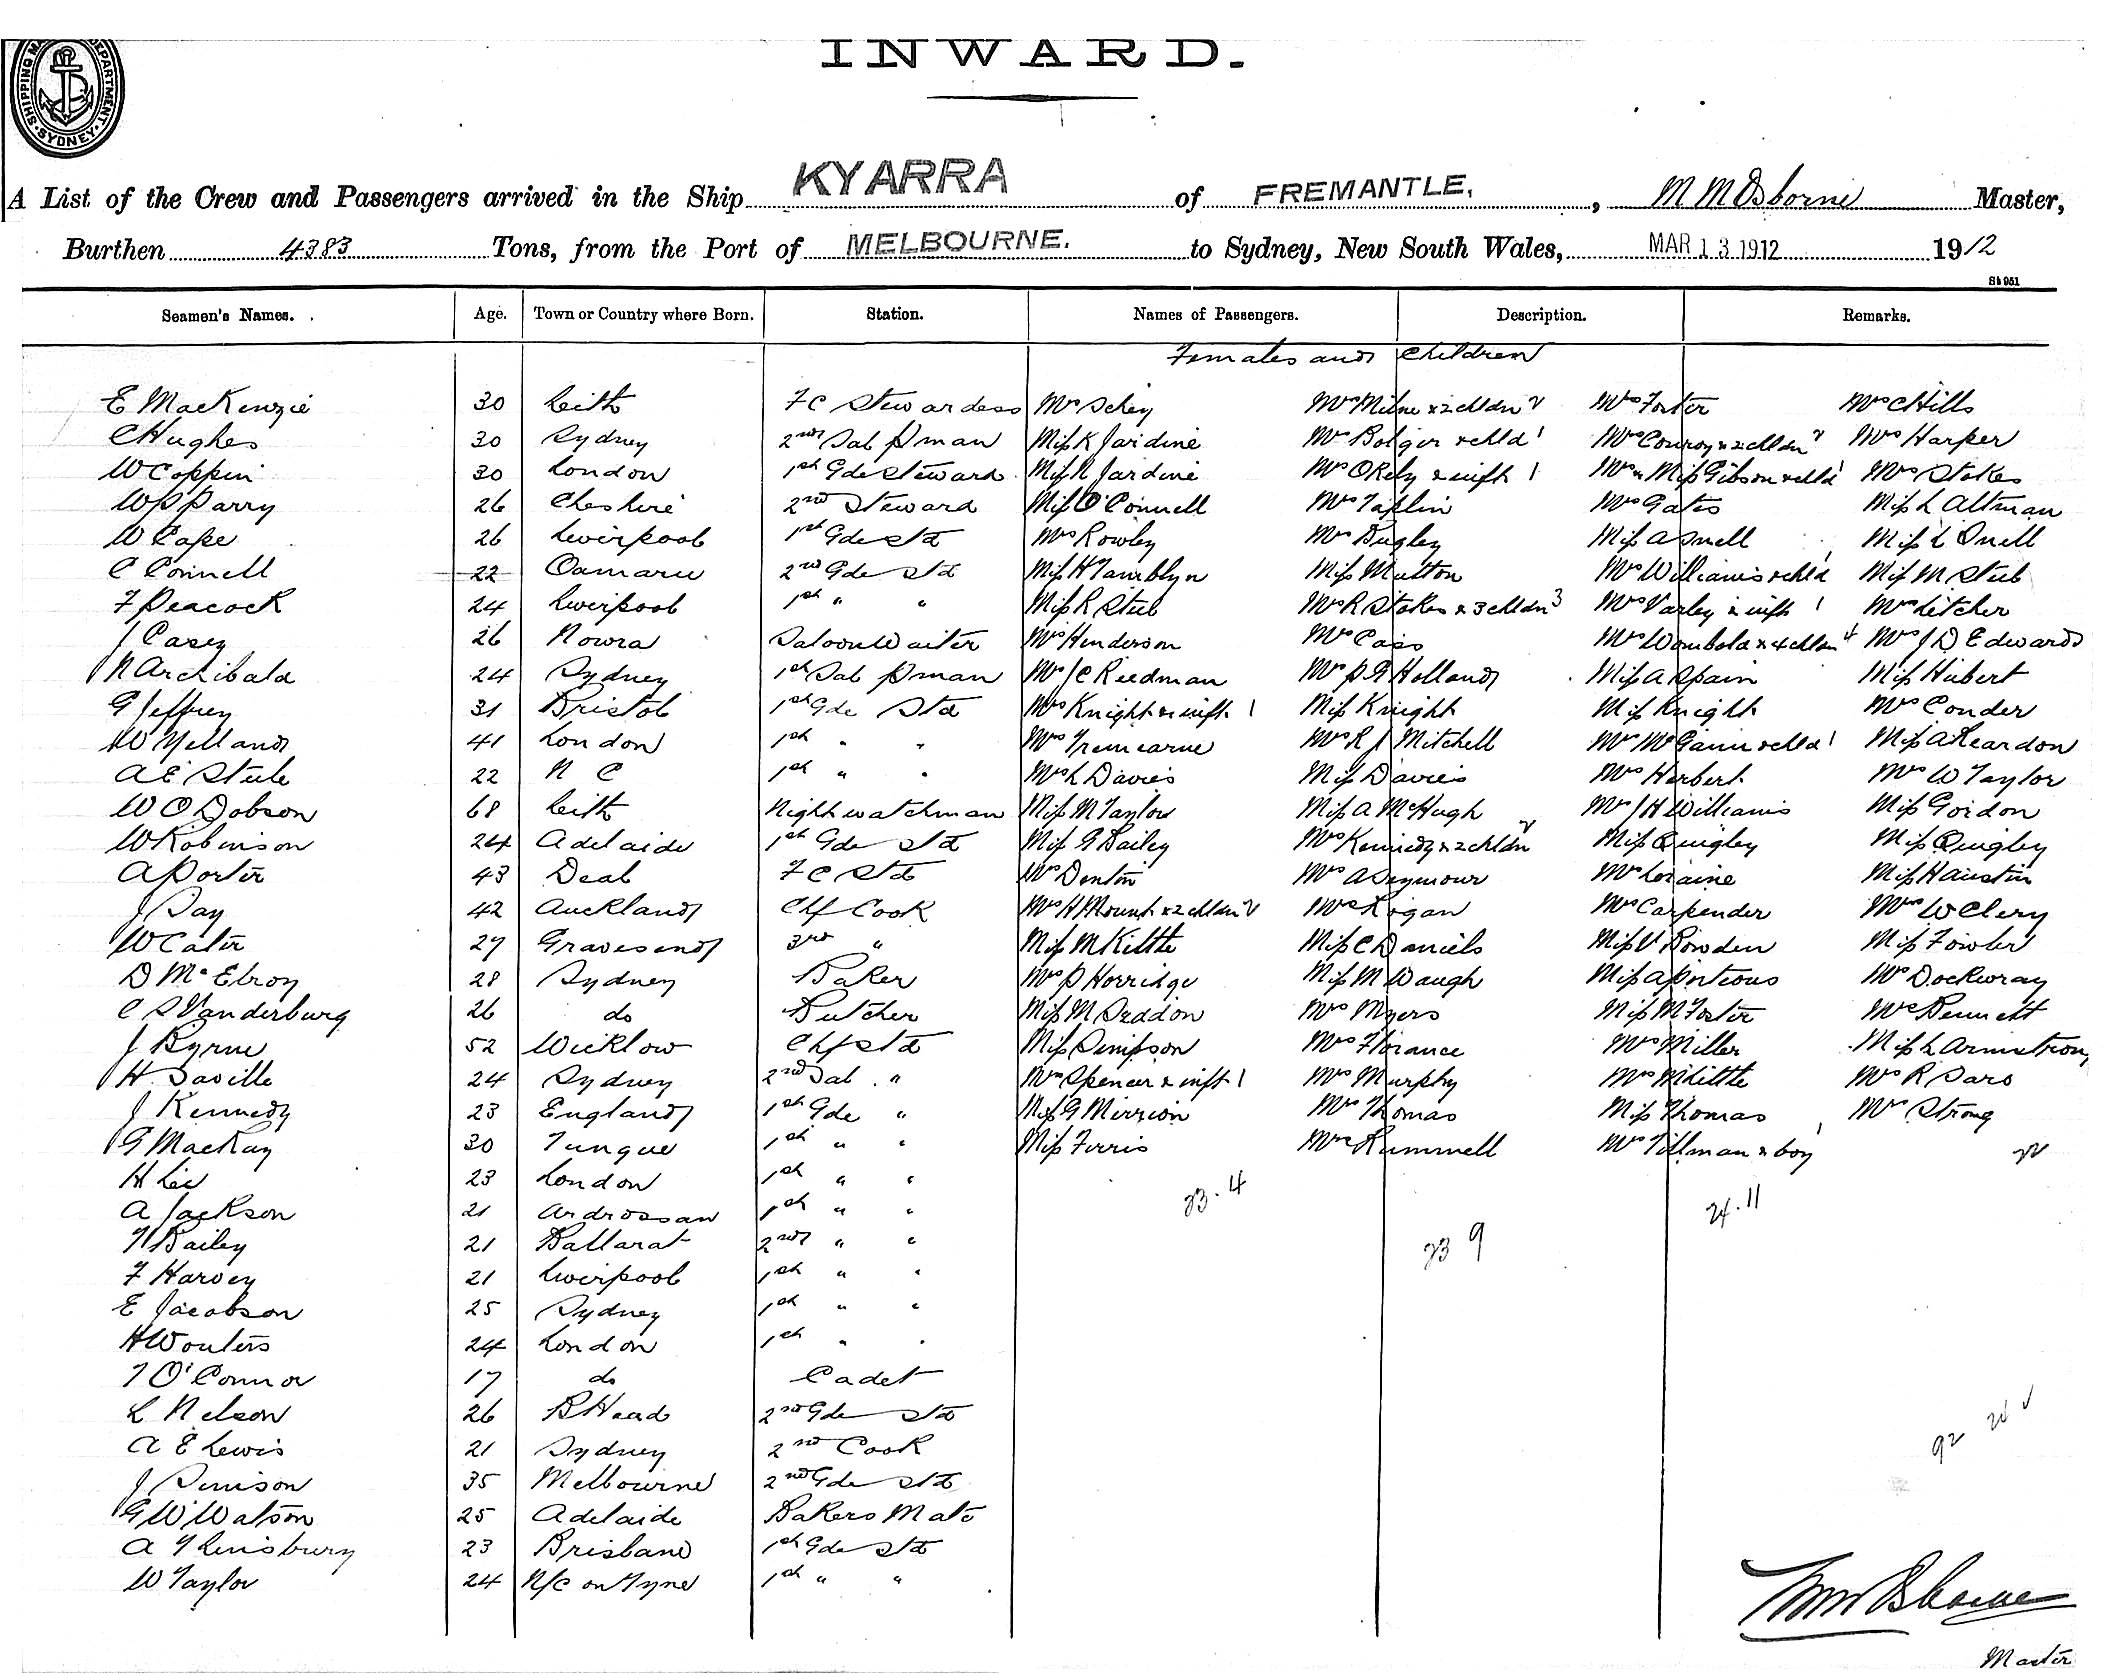 INWARD.
SHIPPING MA DEPARTMENT SYDNEY
A List of the Crew and Passengers arrived in the Ship KYARRA of FREMANTLE, M M Osborne Master,
Burthen 4383 Tons, from the Port of MELBOURNE. to Sydney, New South Wales, MAR 13 1912 1912
Sh 951
Seamen's Names. Age. Town or Country where Born. Station. Names of Passengers. Description. Remarks.
Females and Children
E MacKenzie 30 Leith F C Stewardess Mrs Schey Mrs Milne & 2 chldn 2 Mrs Foster Mrs C Hills
C Hughes 30 Sydney 2nd Sal Pman Miss K Jardine Mrs Bolger & chld 1 Mrs Conroy & 2 chldn 2 Mrs Harper
W Coppin 30 London 1st Gde Steward Miss N Jardine Mrs O Rely & inft 1 Mrs & Miss Gibson & chld 1 Mrs Stokes
W P Parry 26 Cheshire 2nd Steward Miss O'Connell Mrs Taplin Mrs Gates Miss L Altman
W Cape 26 Liverpool 1st Gde Std Mrs Rowley Mrs Bugley Miss A Snell Miss L Snell
C Connell 22 Oamaru 2nd Gde Std Miss H Tamblyn Miss Mutton Mrs Williams & chld 1 Miss M Steel
F Peacock 24 Liverpool 1st " " Miss R Steel Mrs R Stokes & 3 chldn 3 Mrs Varley & inft 1 Mrs Letcher
J Casey 26 Nowra Saloon Waiter Mrs Henderson Mrs Cass Mrs Wombold & 4 chldn 4 Mrs J D Edwards
N Archibald 24 Sydney 1st Sal Pman Mrs J C Reedman Mrs P G Holland Miss A Spain Miss Hubert
G Jeffrey 31 Bristol 1st Gde Std Mrs Knight & inft 1 Miss Knight Miss Knight Mrs Conder
W Yelland 41 London 1st " " Mrs Tremearne Mrs R J Mitchell Mrs McGann & chld 1 Miss A Reardon
A E Steele 22 N C 1st " " Mrs L Davies Miss Davies Mrs Herbert Mrs W Taylor
W O Dobson 68 Leith Night watchman Miss M Taylor Miss A McHugh Mrs J H Williams Miss Gordon
W Robinson 24 Adelaide 1st Gde Std Miss G Bailey Mrs Kennedy & 2 chldn 2 Miss Quigley Miss Quigley
A Porter 43 Deal F C Std Mrs Denton Mrs A Seymour Mrs Loraine Miss H Austin
J Day 42 Auckland Chf Cook Mrs H Mount & 2 chldn 2 Mrs Kogan Mrs Carpender Mrs W Clery
W Cater 27 Gravesend 3rd " Miss M Kiltte Miss C Daniels Miss V Bowden Miss Fowler
D McElroy 28 Sydney Baker Mrs P Horridge Miss M Waugh Miss A Porteous Mrs Dockwray
C S Vanderburg 26 do Butcher Miss M Seddon Mrs Myers Miss M Foster Mrs Bennett
J Byrne 52 Wicklow Chf Std Miss Simpson Mrs Florance Mrs Miller Miss L Armstrong
H Saville 24 Sydney 2nd Sal " Mrs Spencer & inft 1 Mrs Murphy Mrs M Little Mrs R Saro
J Kennedy 23 England 1st Gde " Miss G Mirrion Mrs Thomas Miss Thomas Mrs Strong
G MacKay 30 Tongue 1st " " Miss Ferris Mrs Rummell Mrs Tillman & boy 1 22
H Lee 23 London 1st " " 23.4
A Jackson 21 Ardrossan 1st " " 24.11
T Bailey 21 Ballarat 2nd " " 23 9
F Harvey 21 Liverpool 1st " "
E Jacobson 25 Sydney 1st " "
H Wouters 24 London 1st " "
T O'Connor 17 do Cadet
L Nelson 26 B Head 2nd Gde Std
A E Lewis 21 Sydney 2nd Cook 92 24
J Simson 35 Melbourne 2nd Gde Std
G W Watson 25 Adelaide Bakers Mate
A T Linsbury 23 Brisbane 1st Gde Std
W Taylor 24 N/C on Tyne 1st " "
M M Osborne
Master